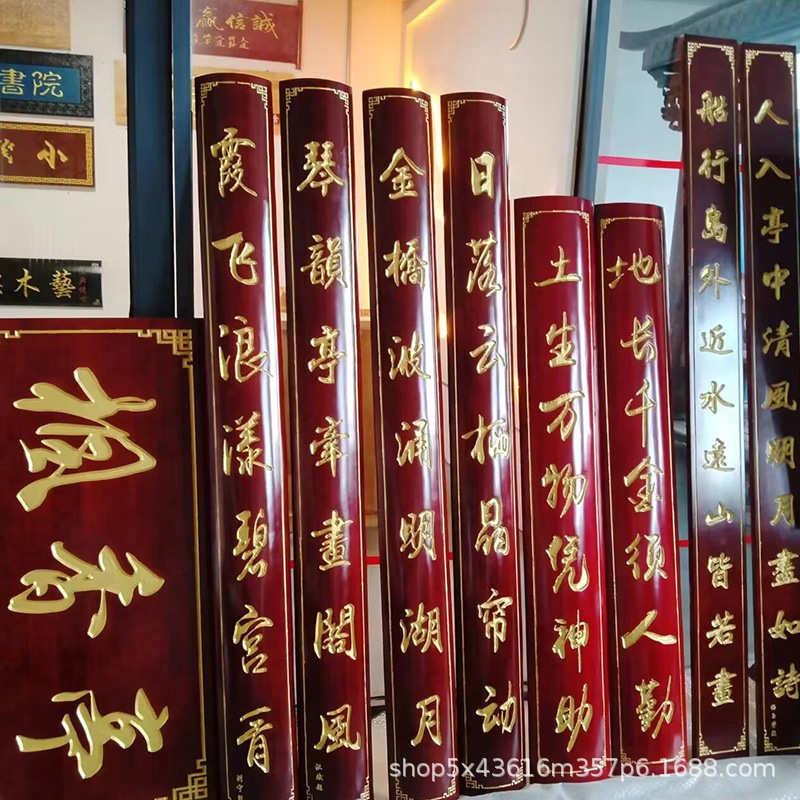 誠信赢
書院
小
木藝
楓香亭
霞飞浪漾碧宫
琴韻亭牵畫閣風
金橋波涌明湖月
日落云栖晶帘动
土生万物凭神助
地长千金须人勤
船行島外近水遠山皆若畫
人入亭中清風明月盡如詩
shop5x43616m357p6.1688.com